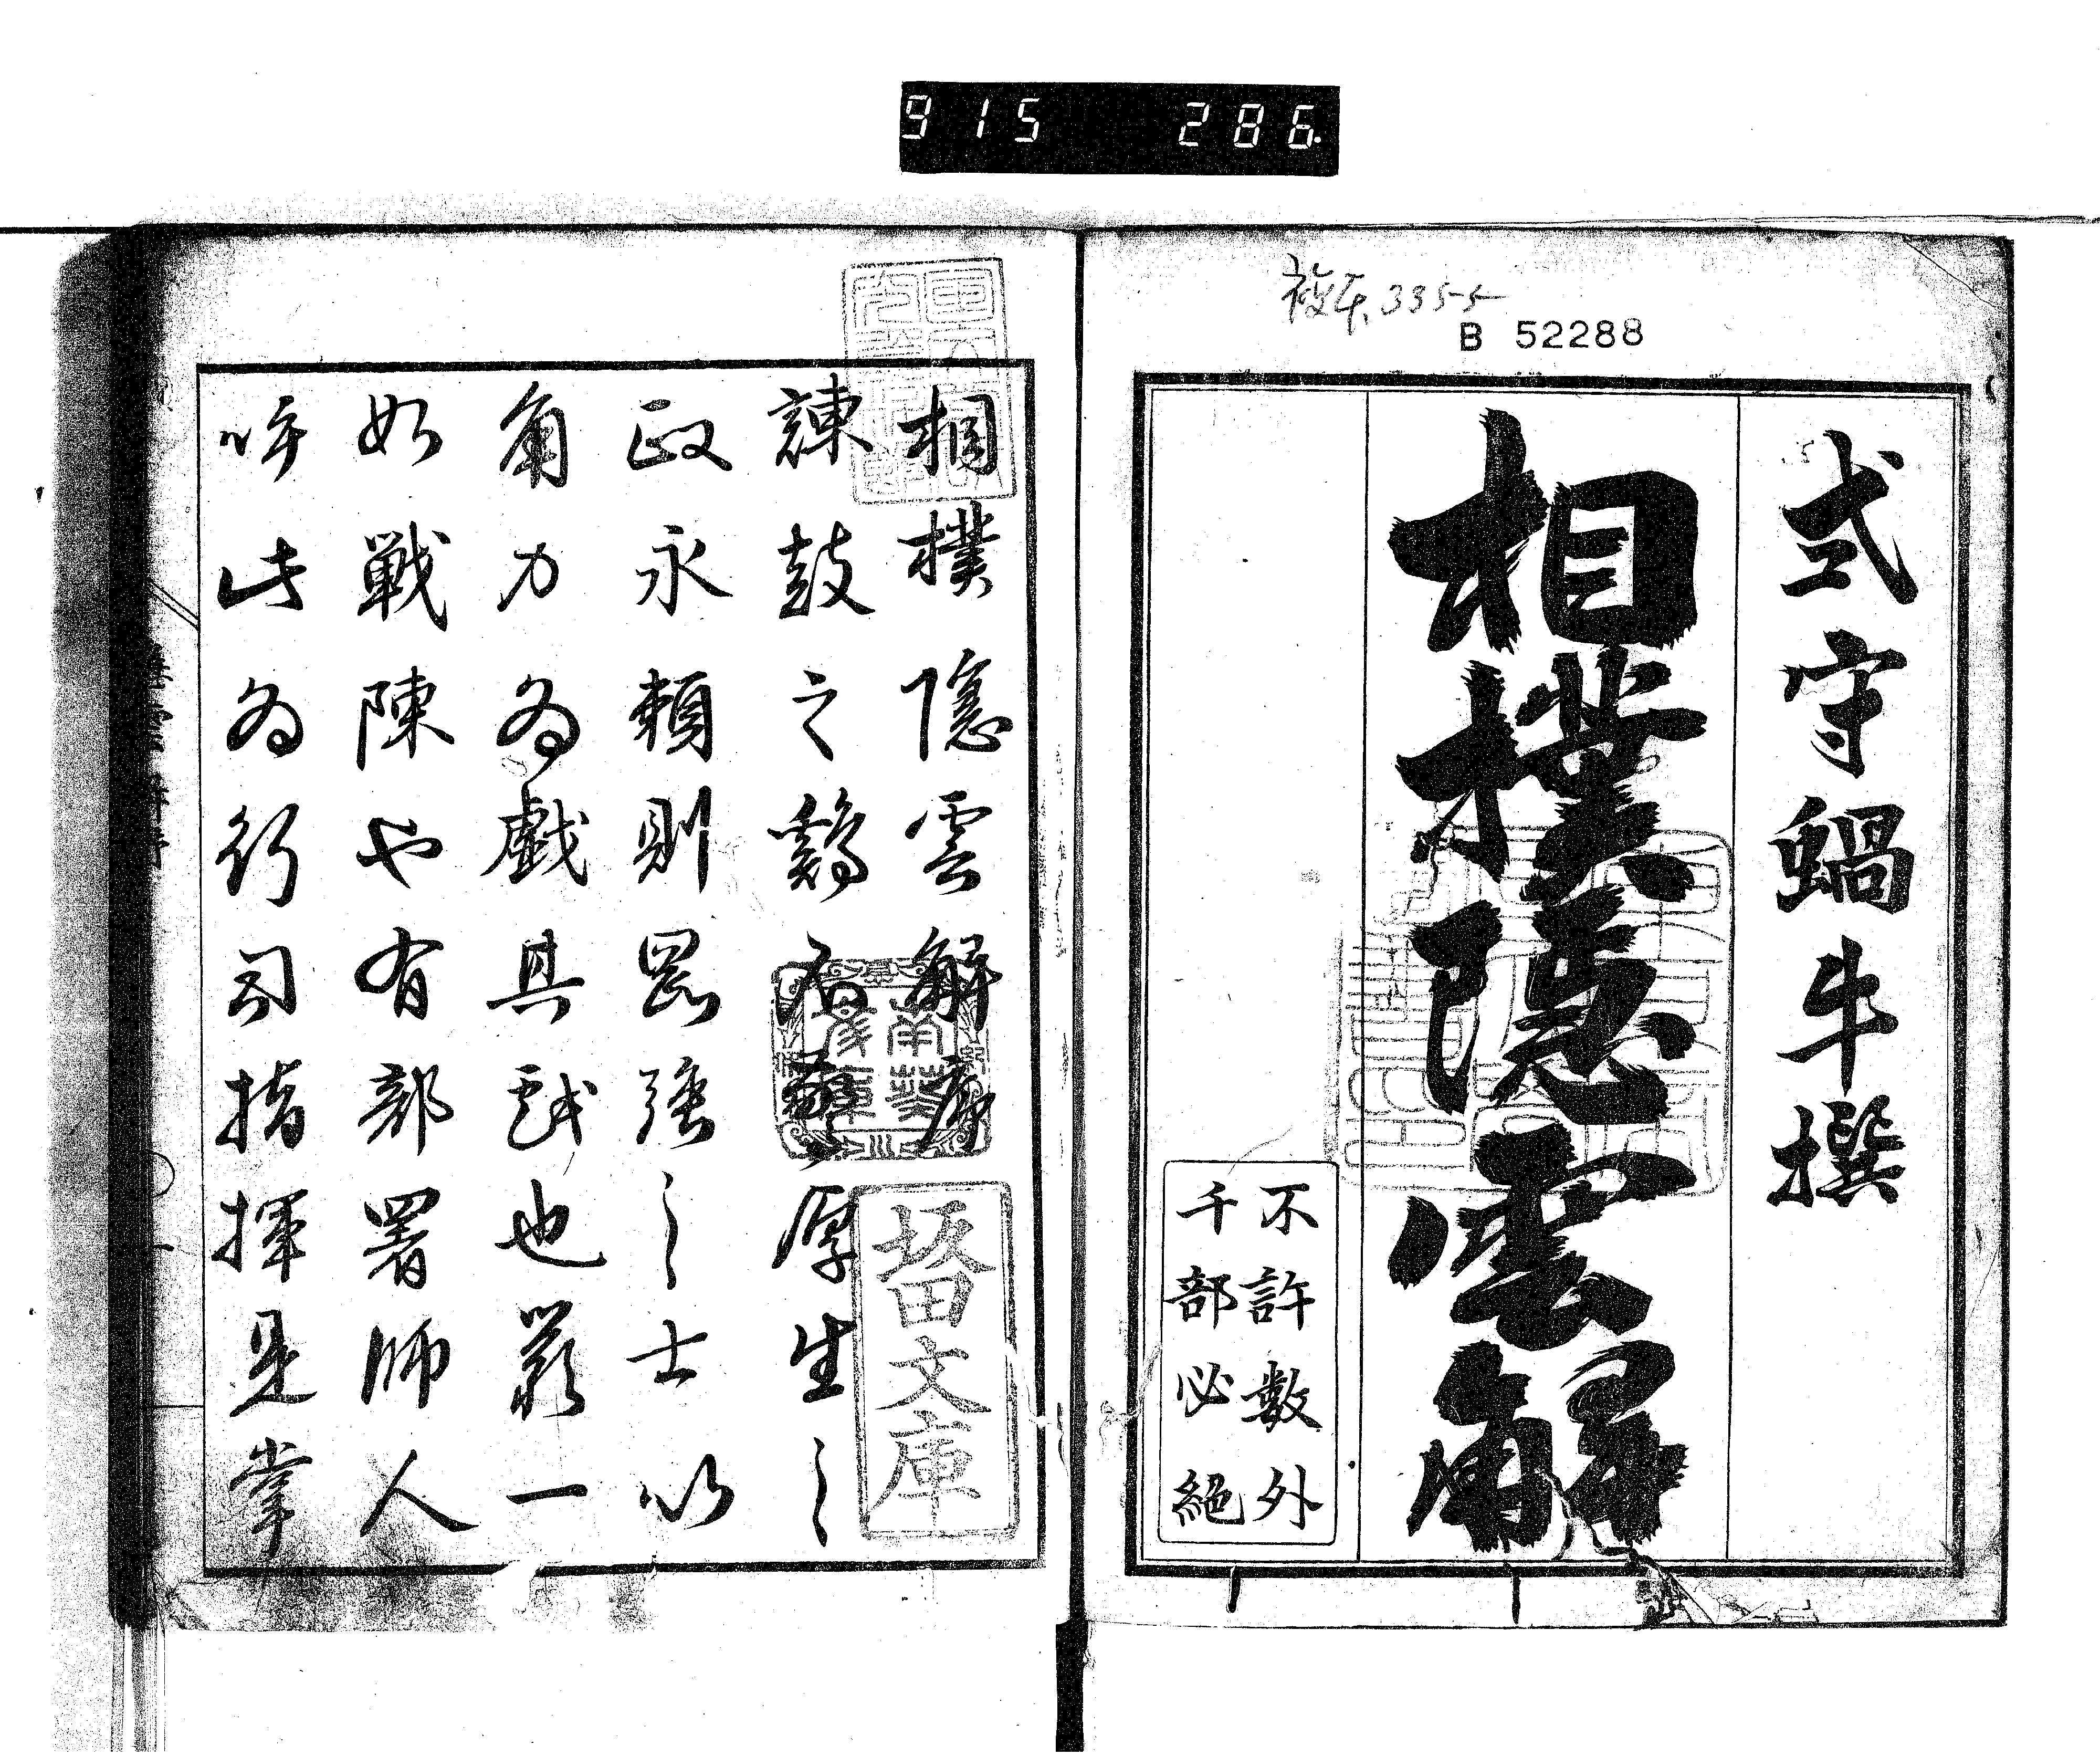 915 286
3355
B 52288
式守蝸牛撰
相撲隠雲解
不許數外
千部必絶
相撲隠雲解序
諫鼓之鷄
厚生之
政永頼則罷強之士以
角力為戯其戯也嚴一
如戦陳也有部署師人
呼此為行司指揮是掌
文庫